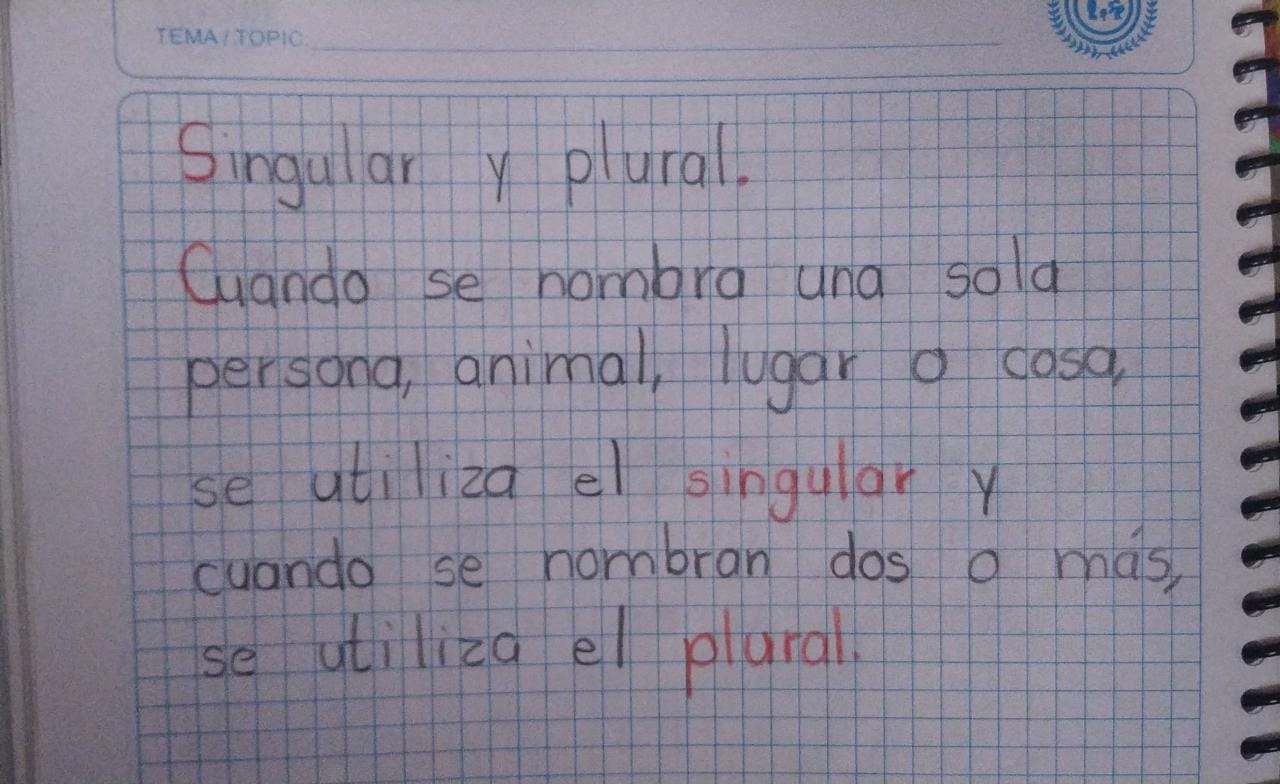 TEMA/TOPIC:
Singular y plural.
Cuando se nombra una sola
persona, animal, lugar o cosa,
se utiliza el singular y
cuando se nombran dos o más,
se utiliza el plural.